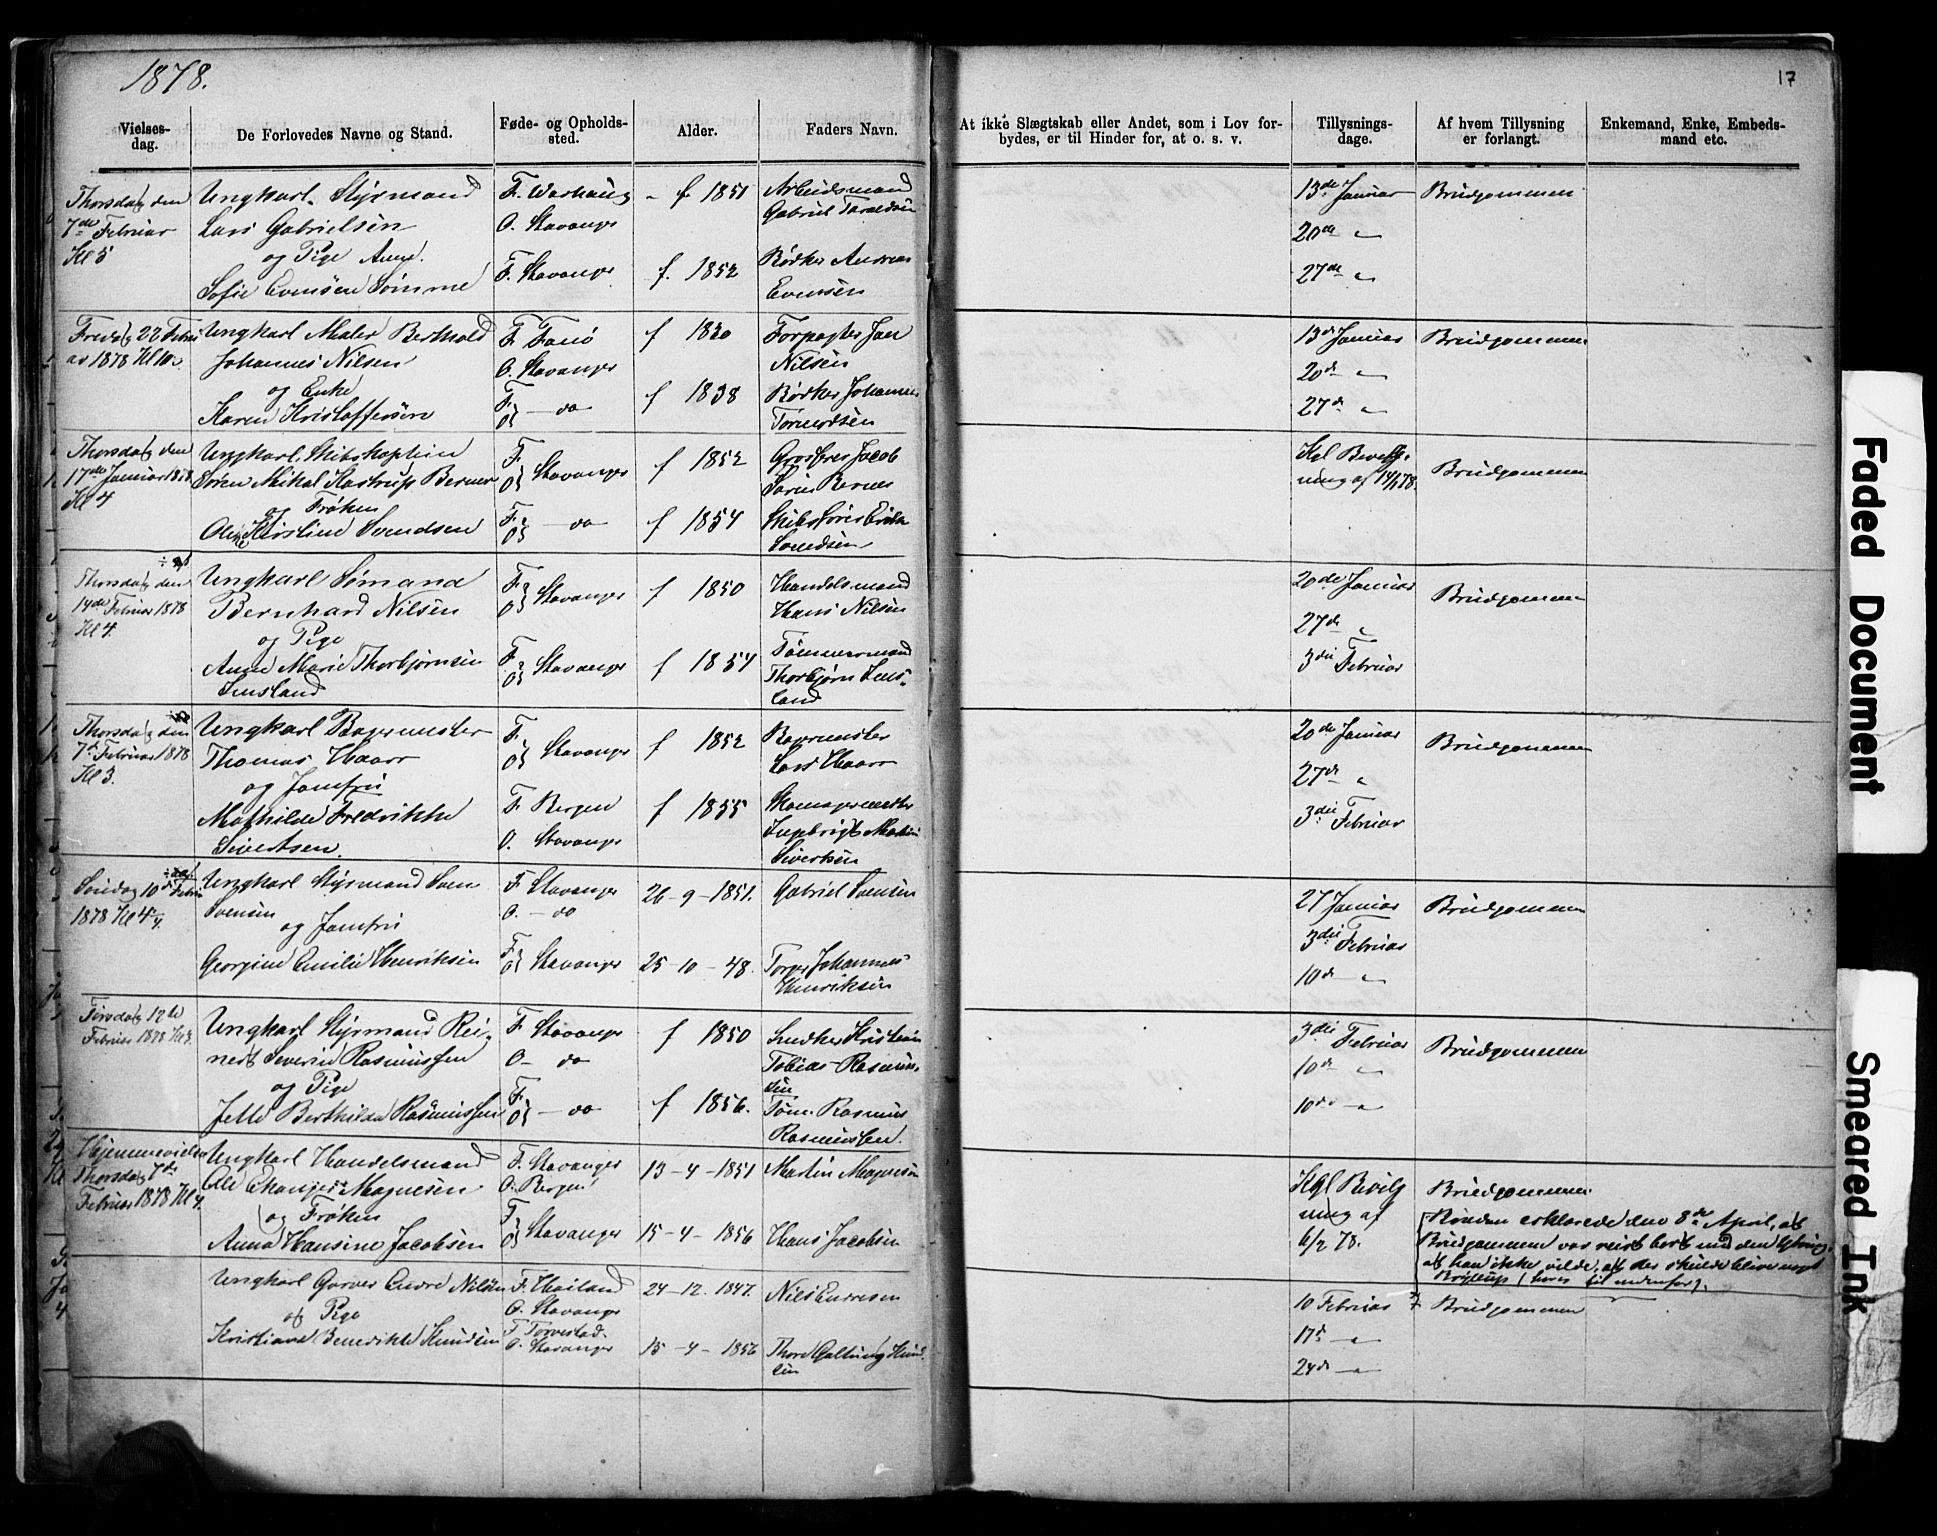 1878.
17
Vielses-
dag.
De Forlovedes Navne og Stand.
Føde- og Opholds-
sted.
Alder.
Faders Navn.
At ikke Slægtskab eller Andet, som i Lov for-
bydes, er til Hinder for, at o. s. v.
Tillysnings-
dage.
Af hvem Tillysning
er forlangt.
Enkemand, Enke, Embeds-
mand etc.
Thorsdag den
7de Februar
Kl 5
Ungkarl Styrmand
Lars Gabrielsen
og Pige Anne
Sofie Evensen Sømme
F. Warhaug
O. Stavanger
F. Stavanger
f 1851
f. 1852
Arbeidsmand
Gabriel Taraldsen
Bødker Andreas
Evensen
13de Januar
20de "
27de "
Brudgommen
Fredag 22 Febru
ar 1878 Kl
Ungkarl Maler Berthold
Johannes Nilsen
og Enke
Karen Kristoffersen
F. Fanø
O. Stavanger
F.
O. do
f 1830
f 1838
Forpagter Jan
Nilsen
Bødker Johannes
Tormodsen
13de Januar
20de "
27de "
Brudgommen
Thorsdag den
17de Januar 1878
Kl 4
Ungkarl Skibskaptein
Søren Mikal Kastrup Berner
og Frøken
Kirstine Svendsen
F.
O. Stavanger
F.
O. do
f 1852
f 1854
Grosserer Jacob
Berner
Skibsfører
Svendsen
Kgl Bevilg-
ning af 14/1 78.
Brudgommen
Thorsdag den
14de Februar 1878
Kl 4.
Ungkarl Sømand
Bernhard Nilsen
og Pige
Anne Marie Thorbjørnsen
Lensland
F.
O. Stavanger
F.
O. Stavanger
f 1850
f 1854
Handelsmand
Hans Nilsen
Tømmermand
Thorbjørn Lens-
land
20de Januar
27de "
3die Februar
Brudgommen
Thorsdag den
7de Februar 1878
Kl 3.
Ungkarl Bagermester
Thomas Haarr
og Jomfru
Mathilde Fredrikke
Sivertsen
F.
O. Stavanger
F. Bergen
O. Stavanger
f 1852
f 1855
Bagermester
Lars Haarr
Skomagermester
Ingebrigt Martin
Sivertsen
20de Januar
27de "
3die Februar
Brudgommen
Søndag 10de Febru
1878 Kl 4
Ungkarl Styrmand Sven
Svensen
og Jomfru
Georgine Emilie Henriksen
F. Stavanger
O. - do
F.
O. Stavanger
26-9-1851.
25-10-48.
Gabriel Svensen
Torger Johannes
Henriksen
27 Januar
3die Februar
10de "
Brudgommen
Tirsdag 12te
Februar 1878 Kl 3.
Ungkarl Styrmand Rei-
nert Severin Rasmussen
og Pige
Jette Berthilde Rasmussen
F. Stavanger
O - do
F.
O. do
f 1850
f 1856.
Snedker Kristian
Tobias Rasmus-
sen
Tøm. Rasmus
Rasmussen.
3die Februar
10de "
10de "
Brudgommen
Hjemmevielse
Thorsdag 7de
Februar 1878 Kl 4.
Ungkarl Handelsmand
Ole Magnesen
og Frøken
Anna Hansine Jacobsen
F. Stavanger
O. Bergen
F.
O. Stavanger
13-4-1851
15-4-1856
Martin Magnesen
Hans Jacobsen
Kgl Bevilg
ning af
6/2 78.
Brudgommen
erklærede den 8de April, at
Brudgommen var reist bort med den Ytring,
at han ikke vilde, at der skulde blive noget
Bryllup
Ungkarl Garver Endre Nilsen
og Pige
Kristiane Benedikte Knudsen
F. Høiland
O. Stavanger
F. Torvestad
O. Stavanger
24-12-1847.
15-4-1856
Nils Endresen
Thore Galtung Knud-
sen
10 Februar
17de "
24de "
Brudgommen
Faded Document
Smeared Ink